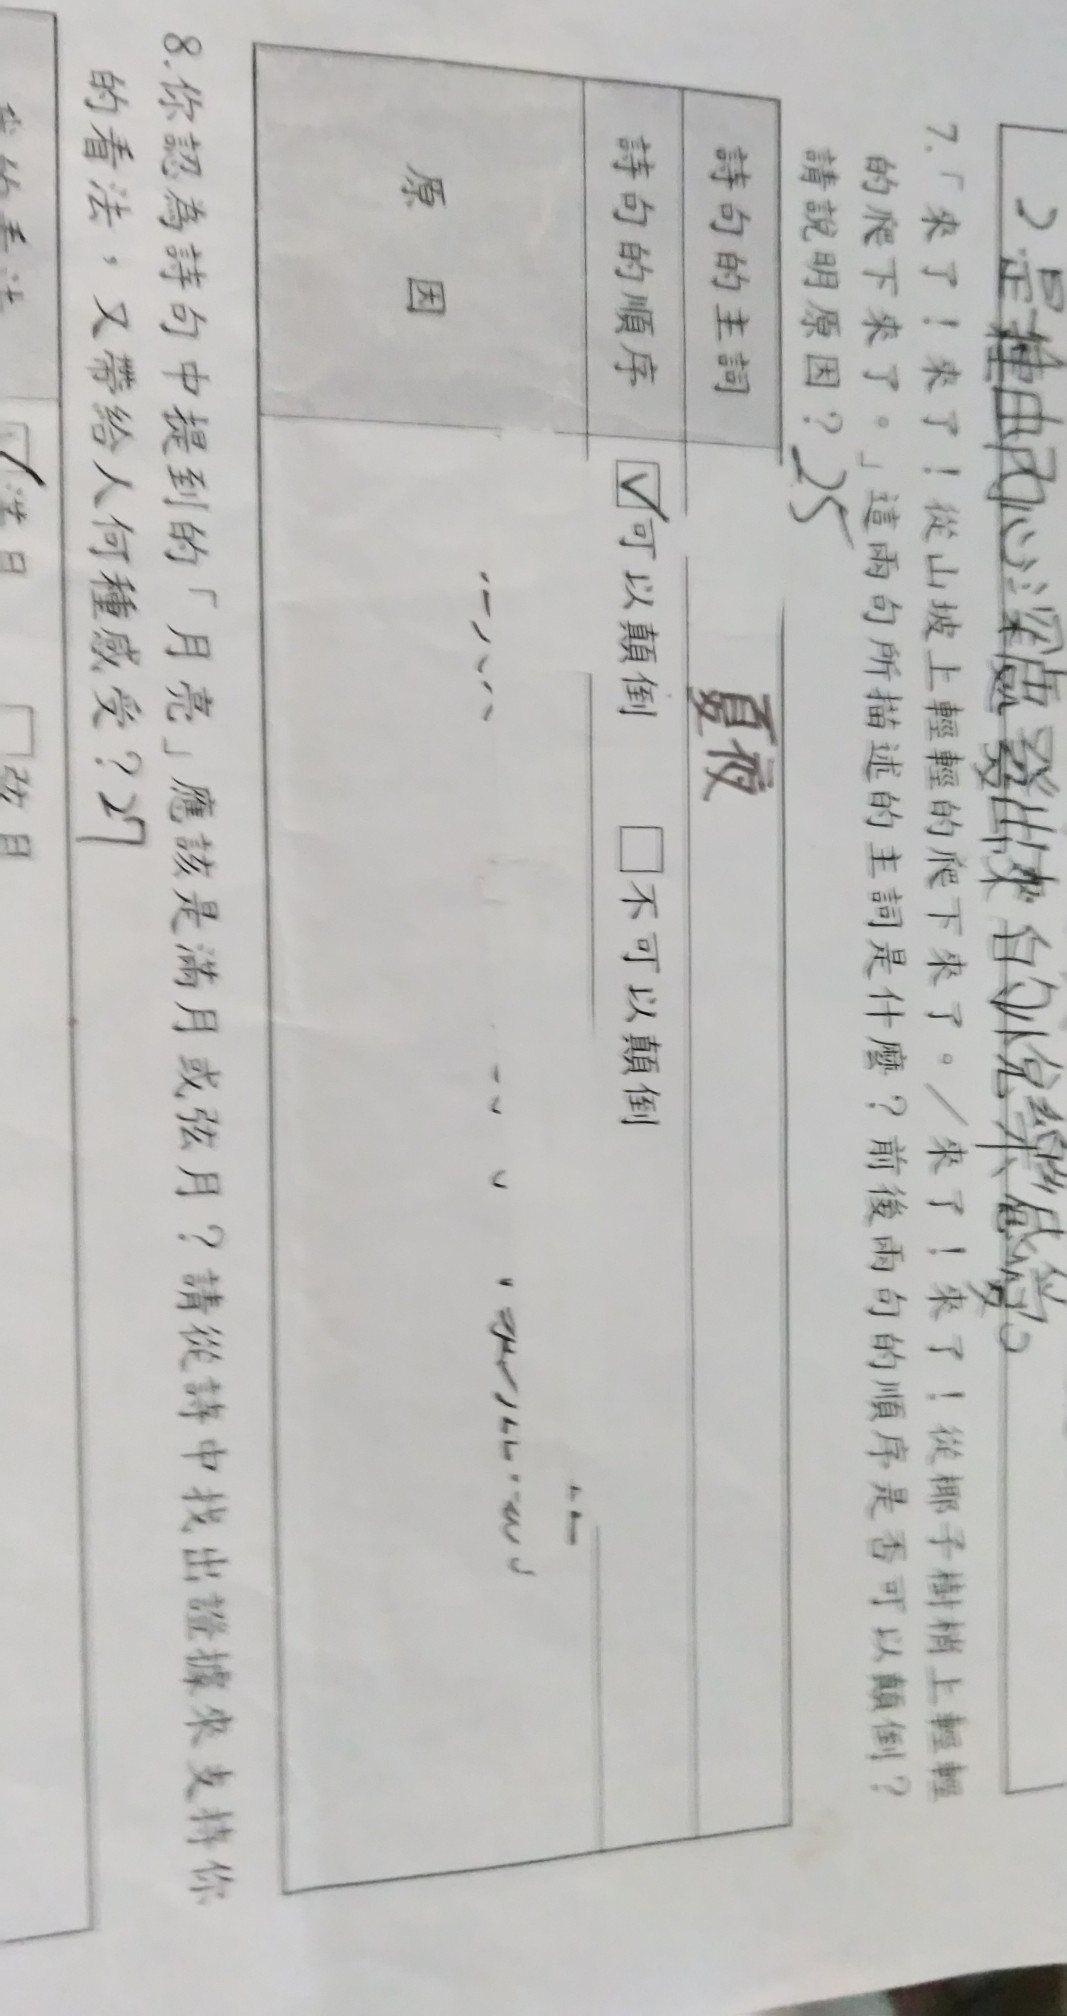 2是種由內心深處發出來的悅樂感受。
7.「來了！來了！從山坡上輕輕的爬下來了。／來了！來了！從椰子樹梢上輕輕
的爬下來了。」這兩句所描述的主詞是什麼？前後兩句的順序是否可以顛倒？
請說明原因？25
詩句的主詞 夏夜
詩句的順序 ☑可以顛倒 □不可以顛倒
原因
8.你認為詩句中提到的「月亮」應該是滿月或弦月？請從詩中找出證據來支持你
的看法，又帶給人何種感受？27
我的看法 ☑滿月 □弦月